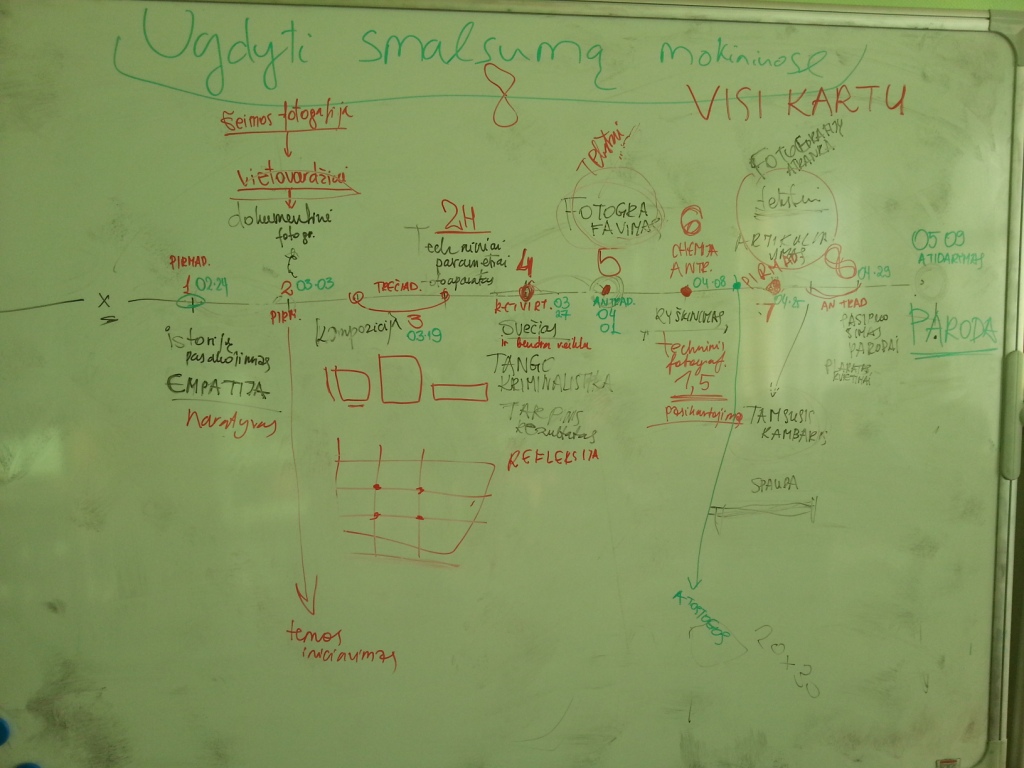 Ugdyti smalsumą mokiniuose
8
VISI KARTU
šeimos fotografija
vietovardžiai
dokumentinė
fotogr.
2H
Techniniai
parametrai
fotoaparatas
FOTOGRA
FAVIMAS
6
CHEMIJA
ANTR.
FOTOGRAFIJŲ
ATRANKA
tekstai
05 09
ATIDARYMAS
PARODA
X
PIRMAD.
1 02-24
2 03-03
PIRM.
TREČIAD.
3
03-19
4
KETVIRT. 03
27
5
ANTRAD.
04
01
04-08
PIRMAD.
7
04-15
8
04-29
ANTRAD
istorijų
pasakojimas
EMPATIJA
naratyvas
Kompozicija
Svečias
ir bendra veikla
KRIMINALISTIKA
TARPINIS
REFLEKSIJA
RYŠKINIMAS,
+
techninis
fotograf.
1,5
pasikartojimas
TAMSUSIS
KAMBARIS
PASIRUO
ŠIMAS
PARODAI
PLAKATAS,
SPAUDA
temos
iniciavimas
ATOSTOGOS
20x30